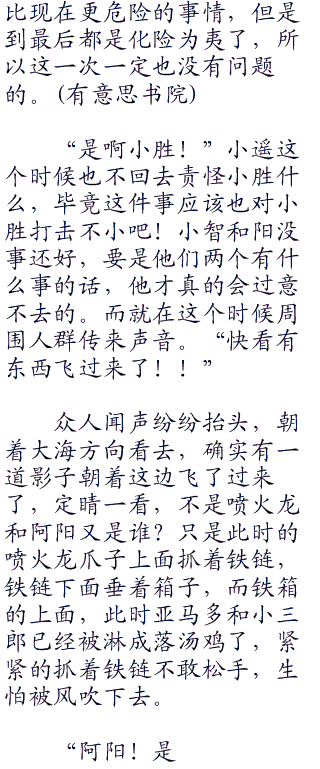 比现在更危险的事情，但是
到最后都是化险为夷了，所
以这一次一定也没有问题
的。(有意思书院)
“是啊小胜！”小遥这
个时候也不回去责怪小胜什
么，毕竟这件事应该也对小
胜打击不小吧！小智和阳没
事还好，要是他们两个有什
么事的话，他才真的会过意
不去的。而就在这个时候周
围人群传来声音。“快看有
东西飞过来了！！”
众人闻声纷纷抬头，朝
着大海方向看去，确实有一
道影子朝着这边飞了过来
了，定晴一看，不是喷火龙
和阿阳又是谁？只是此时的
喷火龙爪子上面抓着铁链，
铁链下面垂着箱子，而铁箱
的上面，此时亚马多和小三
郎已经被淋成落汤鸡了，紧
紧的抓着铁链不敢松手，生
怕被风吹下去。
“阿阳！是